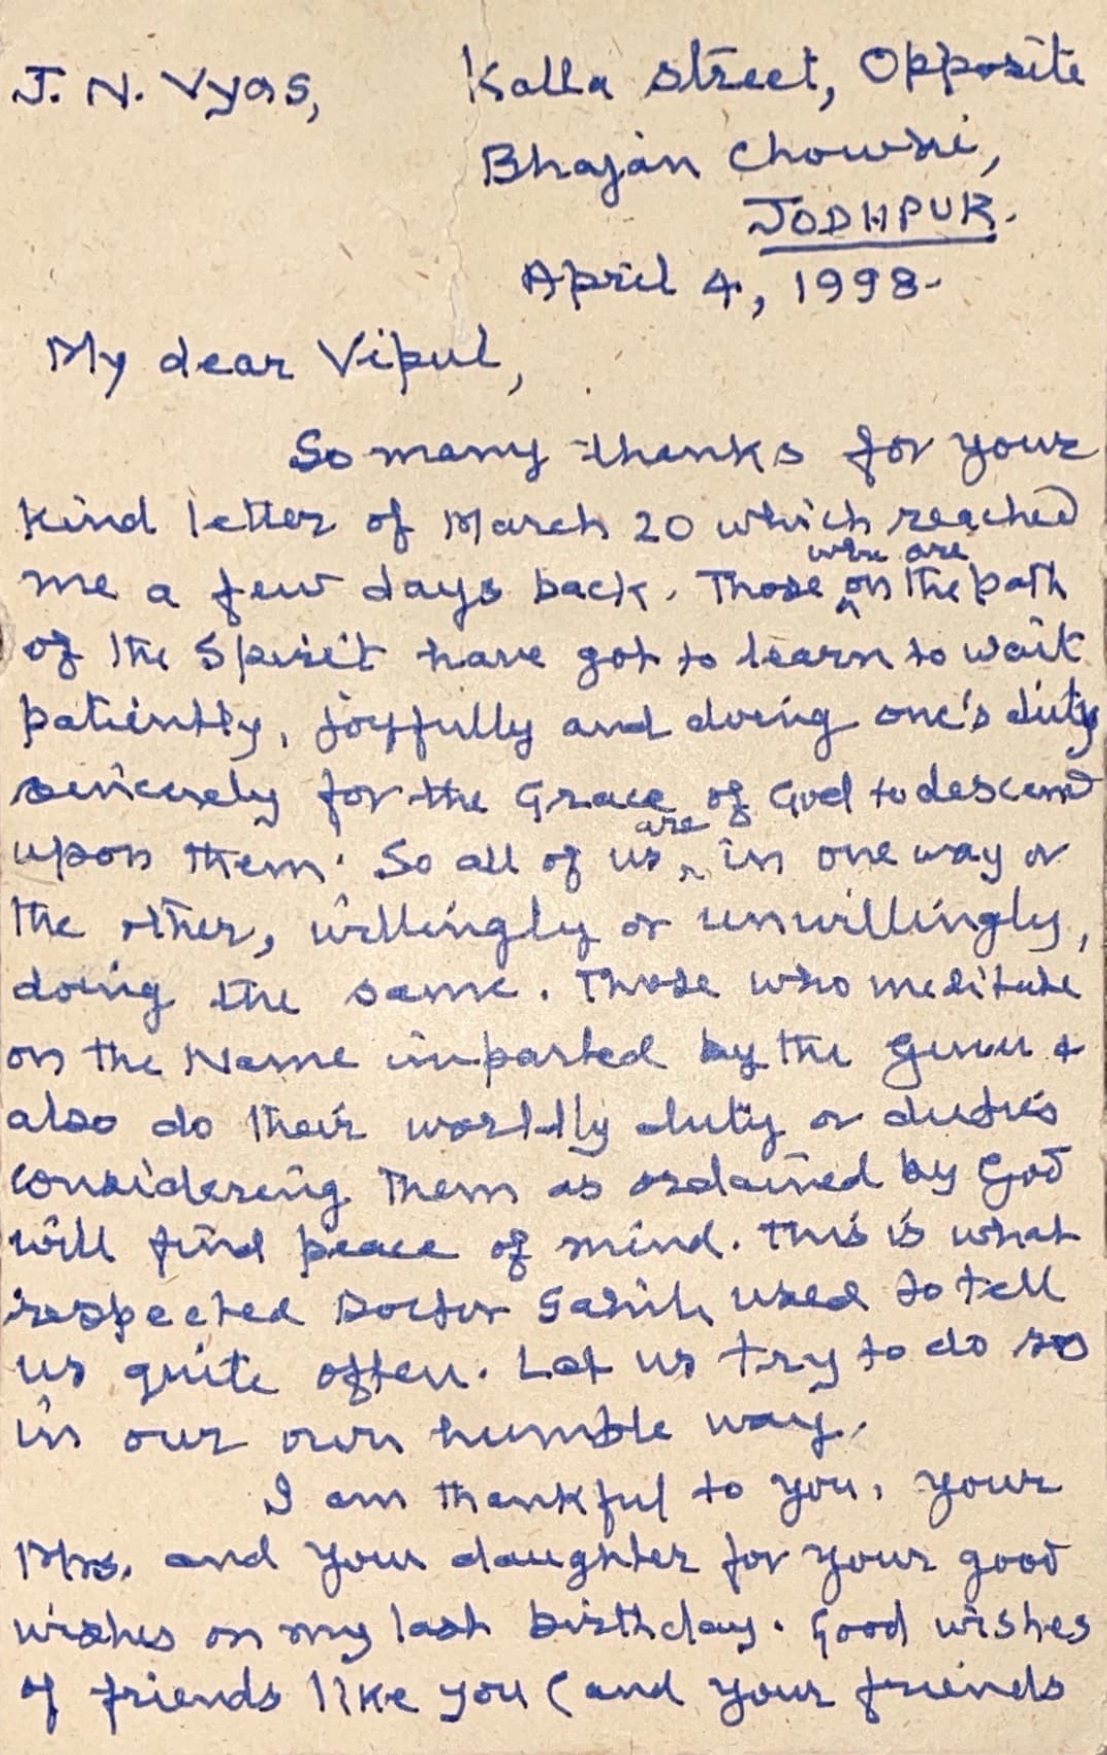 J. N. Vyas, Kalla Street, Opposite
Bhajan Chowki,
JODHPUR.
April 4, 1998.
My dear Vipul,
So many thanks for your
kind letter of March 20 which reached
me a few days back. Those who are on the path
of the Spirit have got to learn to wait
patiently, joyfully and doing one's duty
sincerely for the Grace of God to descend
upon them. So all of us are in one way or
the other, willingly or unwillingly,
doing the same. Those who meditate
on the Name imparted by the Guru &
also do their worldly duty or duties
considering them as ordained by God
will find peace of mind. This is what
respected Doctor Sahib used to tell
us quite often. Let us try to do so
in our own humble way.
I am thankful to you, your
Mrs. and your daughter for your good
wishes on my last birthday. Good wishes
of friends like you (and your friends